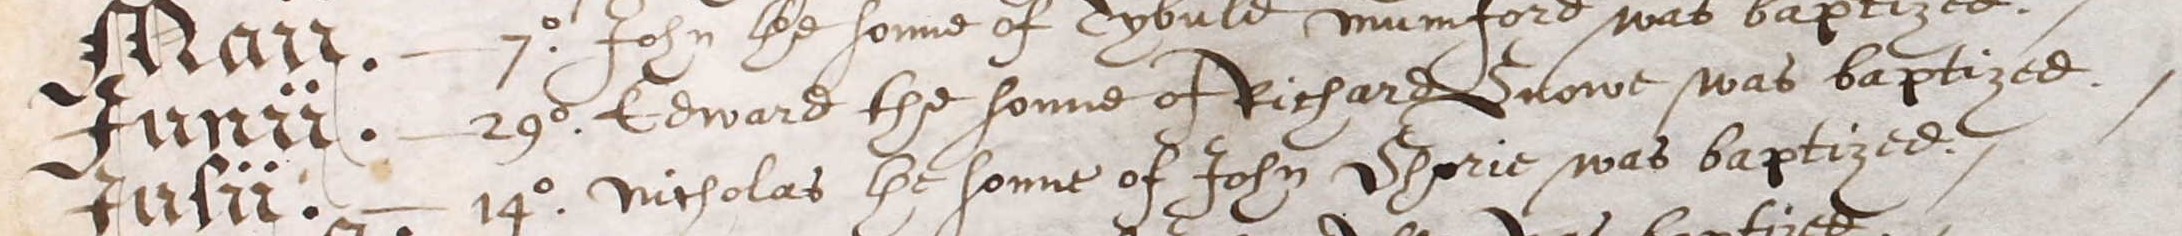 Maii. — 7º. John the sonne of Tybuld Mumford was baptized.
Junii. — 29º. Edward the sonne of Richard Snowe was baptized.
Julii. — 14º. Nicholas the sonne of John was baptized.
was baptized.